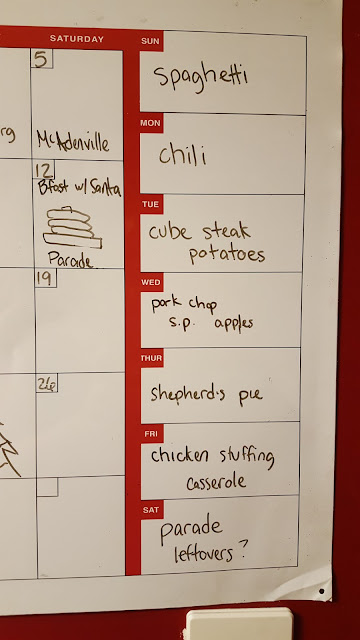 SATURDAY
5
rg
McAdenville
12
Bfast w/ Santa
Parade
19
26
SUN
spaghetti
MON
chili
TUE
cube steak
potatoes
WED
pork chop
s.p. apples
THUR
shepherd's pie
FRI
chicken stuffing
casserole
SAT
parade
leftovers?